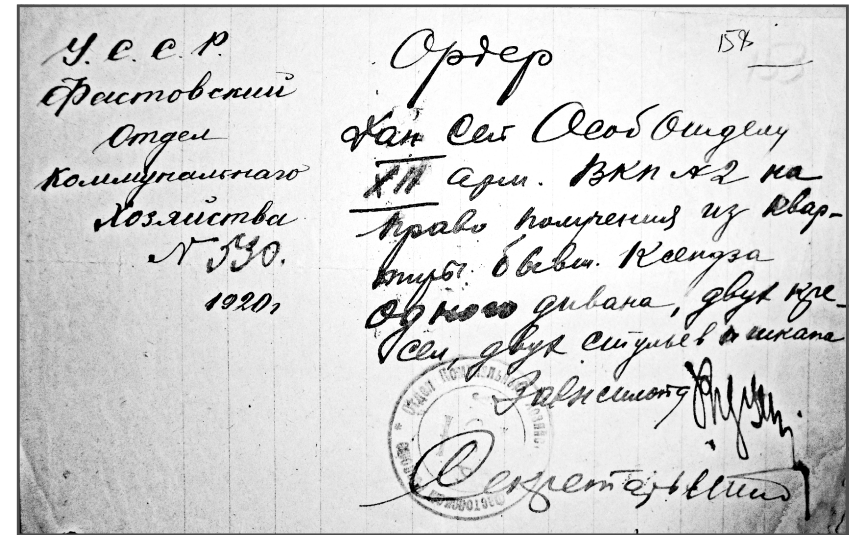 У. С. С. Р.
Фастовский
Отдел
Коммунальнаго
Хозяйства
N 530.
1920 г
158
Ордер
Дан сей Особ Отделу
XII арм. ВКП №2 на
право получения из квар-
тиры бывш. Ксендза
одного дивана, двух кре-
сел, двух стульев и шкапа
Секретарь
Отдел Коммунальн Хозяйс